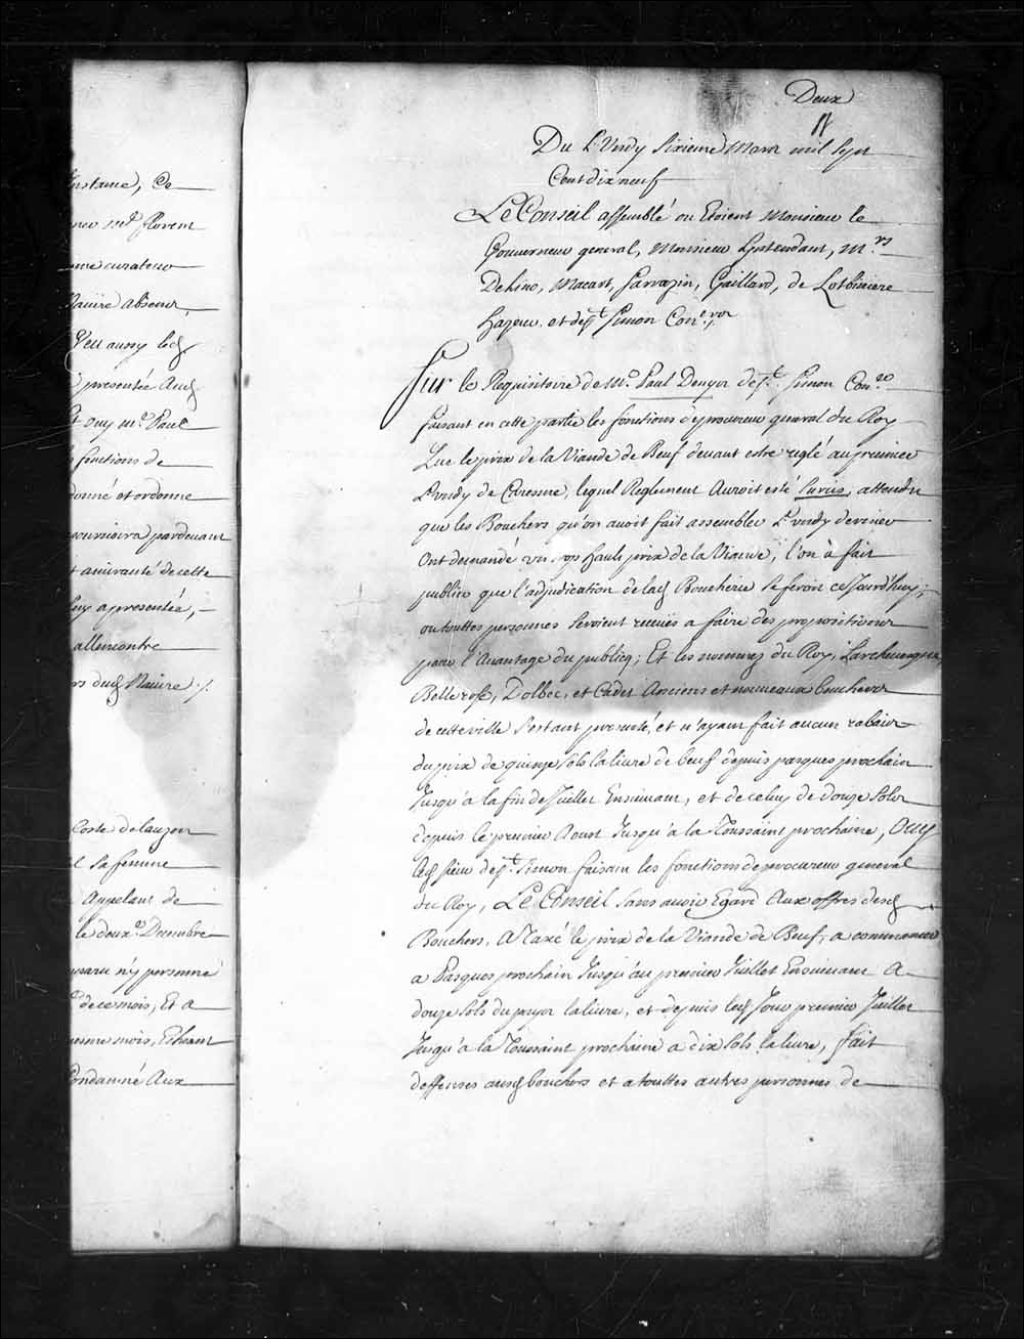 instance, De
me florent
curateur
Navire absens,
Veu aussy led
presentée Aud
ouy me. Paul
fonctions de
donné et ordonne
poursuivra pardevant
amirauté de cette
luy apresentée,
allencontre
dud Navire ./.
Coste de lauzon
sa femme
Appelant de
le deux.e Decembre
n'y personne
de ce mois, Et a
mesme mois, Echeant
Condamné Aux
Deux
Du Lundy sixieme Mars mil sept
Cent dix neuf
Le Conseil assemblé ou Etoient Monsieur le
Gouverneur general, Monsieur Lyntendant, M.rs
Delino, Macart, Sarrazin, Gaillard, de Lotbiniere
hazeur, et de st. Simon Con.ers
Sur le Requisitoire de Me. Paul Denys de st. Simon Con.er
faisant en cette partie les fonctions de procureur general du Roy
Que le prix de la Viande de Beuf devant estre reglé au premier
Lundy de Caresme, lequel Reglement Auroit esté surcis, attendu
que les Bouchers qu'on avoit fait assembler Lundy dernier
Ont demandé un trop hault prix de la Viande, l'on à fait
publier que l'adjudication de lad Boucherie se feroit cejourd'huy;
ou touttes personnes seroient reçuës a faire des propositions
pour l'Avantage du publicq; Et les nommez du Roy, Larchevesque,
Bellerose, Dolbec, et Cadet Anciens et nouveaux bouchers
de cette ville s'estant presenté, et n'ayant fait aucun rabais
du prix de quinze sols la livre de beuf depuis pasques prochain
Jusqu'a la fin de Juillet Ensuivant, et de celuy de douze sols
depuis le premier Aoust Jusqu'a la Toussaint prochaine, Ouy
led sieur de st. Simon faisant les fonctions de procureur general
du Roy, Le Conseil sans avoir Egard Aux offres desd
Bouchers, A Taxé le prix de la Viande de Beuf, a commencer
a Pasques prochain Jusqu'au premier Juillet Ensuivant A
douze sols du pays la livre, et depuis led Jour premier Juillet
Jusqu'a la Toussaint prochaine a dix sols la livre, fait
deffenses ausd bouchers et a touttes autres personnes de